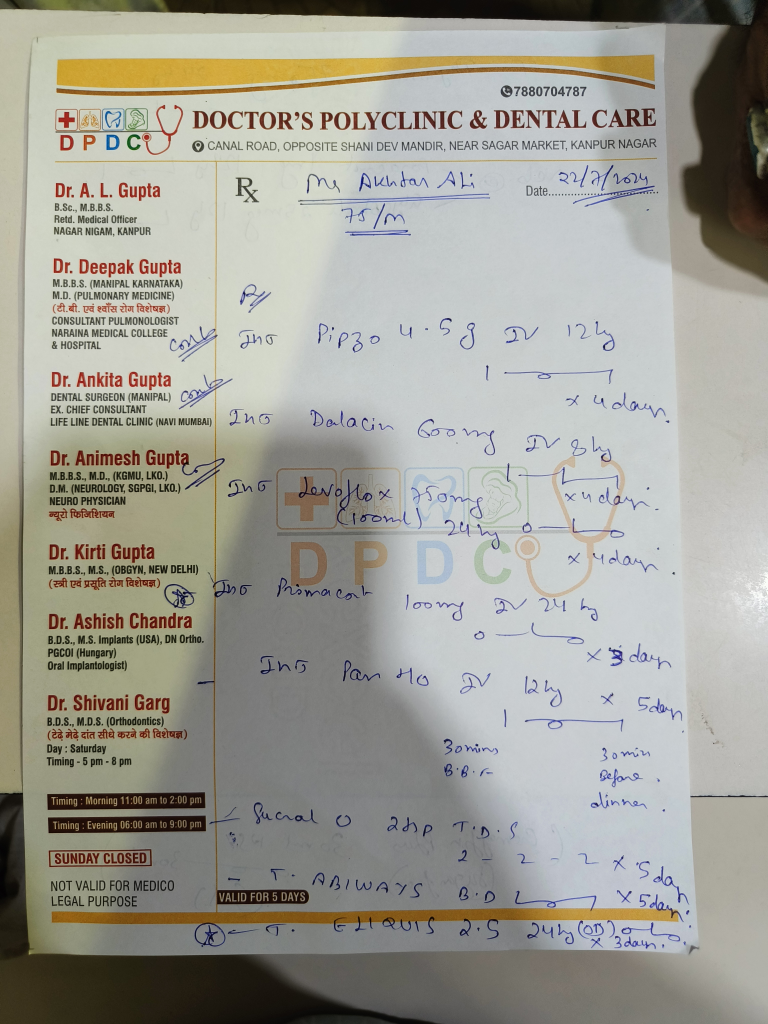 7880704787
DPDC
DOCTOR'S POLYCLINIC & DENTAL CARE
CANAL ROAD, OPPOSITE SHANI DEV MANDIR, NEAR SAGAR MARKET, KANPUR NAGAR
Dr. A. L. Gupta
B.Sc., M.B.B.S.
Retd. Medical Officer
NAGAR NIGAM, KANPUR
Dr. Deepak Gupta
M.B.B.S. (MANIPAL KARNATAKA)
M.D. (PULMONARY MEDICINE)
(टी.बी. एवं श्वाँस रोग विशेषज्ञ)
CONSULTANT PULMONOLOGIST
NARAINA MEDICAL COLLEGE
& HOSPITAL
Dr. Ankita Gupta
DENTAL SURGEON (MANIPAL)
EX. CHIEF CONSULTANT
LIFE LINE DENTAL CLINIC (NAVI MUMBAI)
Dr. Animesh Gupta
M.B.B.S., M.D., (KGMU, LKO.)
D.M. (NEUROLOGY, SGPGI, LKO.)
NEURO PHYSICIAN
न्यूरो फिजिशियन
Dr. Kirti Gupta
M.B.B.S., M.S., (OBGYN, NEW DELHI)
(स्त्री एवं प्रसूति रोग विशेषज्ञ)
Dr. Ashish Chandra
B.D.S., M.S. Implants (USA), DN Ortho.
PGCOI (Hungary)
Oral Implantologist)
Dr. Shivani Garg
B.D.S., M.D.S. (Orthodontics)
(टेढ़े मेढ़े दांत सीधे करने की विशेषज्ञ)
Day : Saturday
Timing - 5 pm - 8 pm
Timing : Morning 11:00 am to 2:00 pm
Timing : Evening 06:00 am to 9:00 pm
SUNDAY CLOSED
NOT VALID FOR MEDICO
LEGAL PURPOSE
VALID FOR 5 DAYS
Rx Mr Akhtar Ali Date 22/7/2024
75/M
Rx
Inj Pipzo 4.5g IV 12hly
x 4 days.
Inj Dalacin 600mg IV 8hly
x 4 days.
Inj Levoflox 750mg
(100ml) 24hly
x 4 days.
DPDC
Inj Primacort 100mg IV 24hly
x 3 days
Inj Pan 40 IV 12hly x 5 days.
30mins 30min
B.B.F Before
dinner.
Sucral O 2tsp T.D.S
2 - 2 - 2 x 5 days
- T. ABIWAYS B.D x 5 days.
T. ELIQUIS 2.5 24hly (OD)
x 3 days.